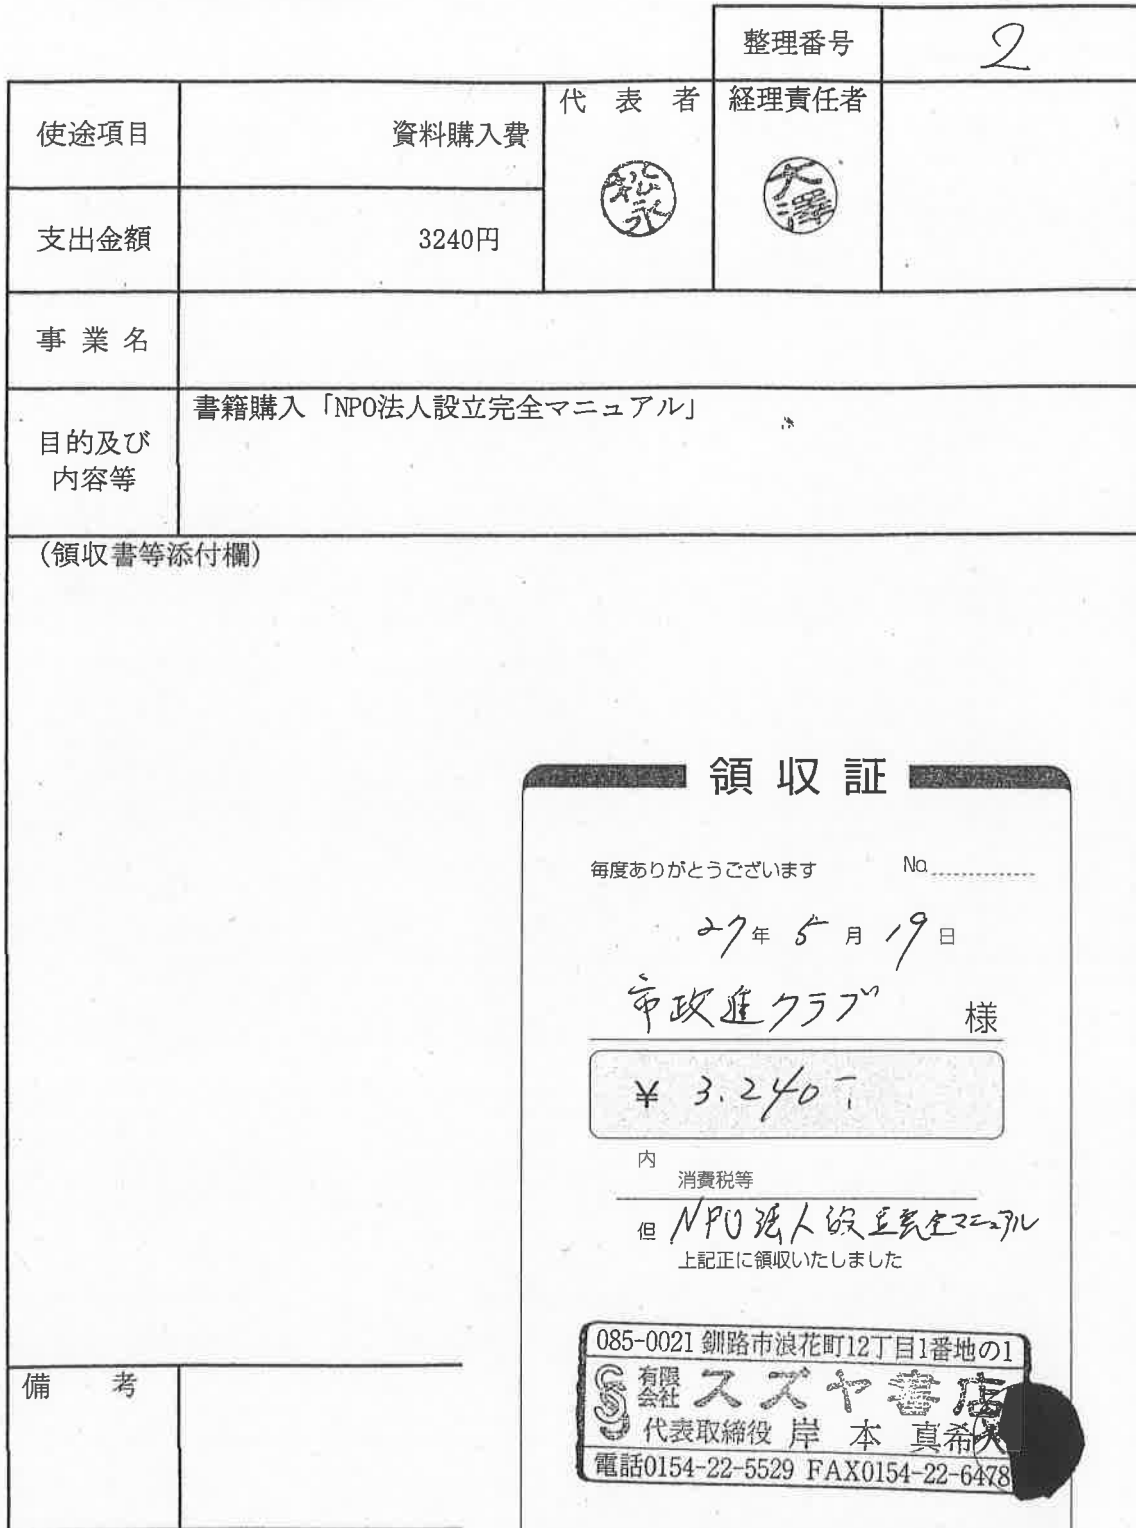 整理番号 2
使途項目 資料購入費
代表者 経理責任者
松永 大澤
支出金額 3240円
事業名
目的及び
内容等
書籍購入「NPO法人設立完全マニュアル」
(領収書等添付欄)
領収証
毎度ありがとうございます No.
27年 5月 19日
市政進クラブ 様
¥ 3.240-
内
消費税等
但 NPO法人設立完全マニュアル
上記正に領収いたしました
085-0021 釧路市浪花町12丁目1番地の1
有限会社 スズヤ書店
代表取締役 岸本 真希
電話0154-22-5529 FAX0154-22-6478
備考